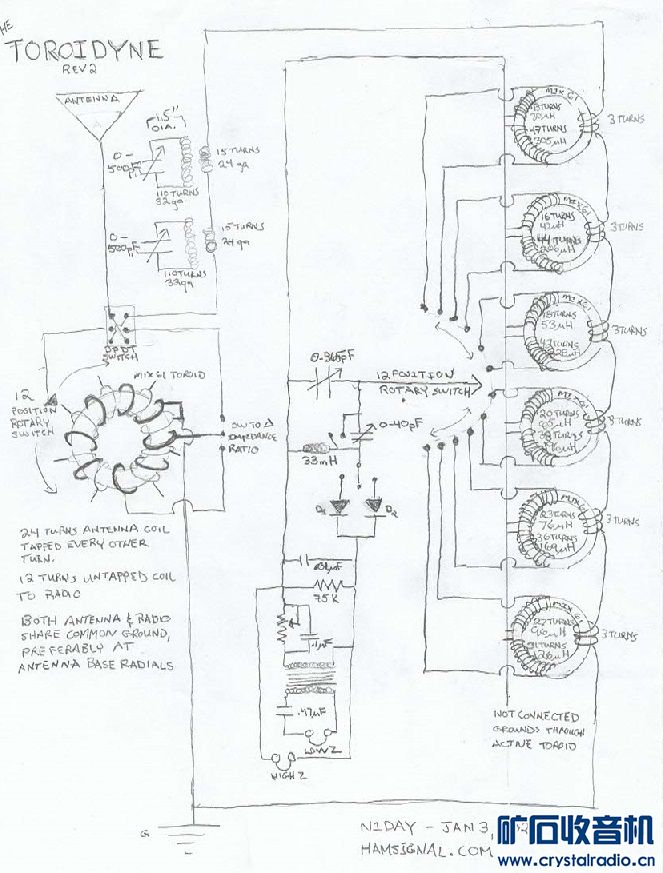 THE
TOROIDYNE
REV 2
ANTENNA
1.5"
DIA.
0-
500pF
110 TURNS
32ga
15 TURNS
24ga
0-
500pF
110 TURNS
32ga
15 TURNS
24ga
DPDT
SWITCH
MIX 61 TOROID
12
POSITION
ROTARY
SWITCH
LOW TO Δ
IMPEDANCE
RATIO
24 TURNS ANTENNA COIL
TAPPED EVERY OTHER
TURN.
12 TURNS UNTAPPED COIL
TO RADIO
BOTH ANTENNA & RADIO
SHARE COMMON GROUND,
PREFERABLY AT
ANTENNA BASE RADIALS
G
0-365pF
12 POSITION
ROTARY SWITCH
0-40pF
33mH
D1
D2
75K
.1µF
.47µF
LOW Z
HIGH Z
MIX 61
47 TURNS
305µH
3 TURNS
MIX 61
16 TURNS
42µH
44 TURNS
3 TURNS
MIX 61
18 TURNS
53µH
3 TURNS
MIX 61
20 TURNS
38 TURNS
3 TURNS
MIX 61
76µH
36 TURNS
169µH
3 TURNS
MIX 61
27 TURNS
3 TURNS
NOT CONNECTED
GROUNDS THROUGH
ACTIVE TOROID
N1DAY - JAN 3,
HAMSIGNAL.COM
矿石收音机
www.crystalradio.cn